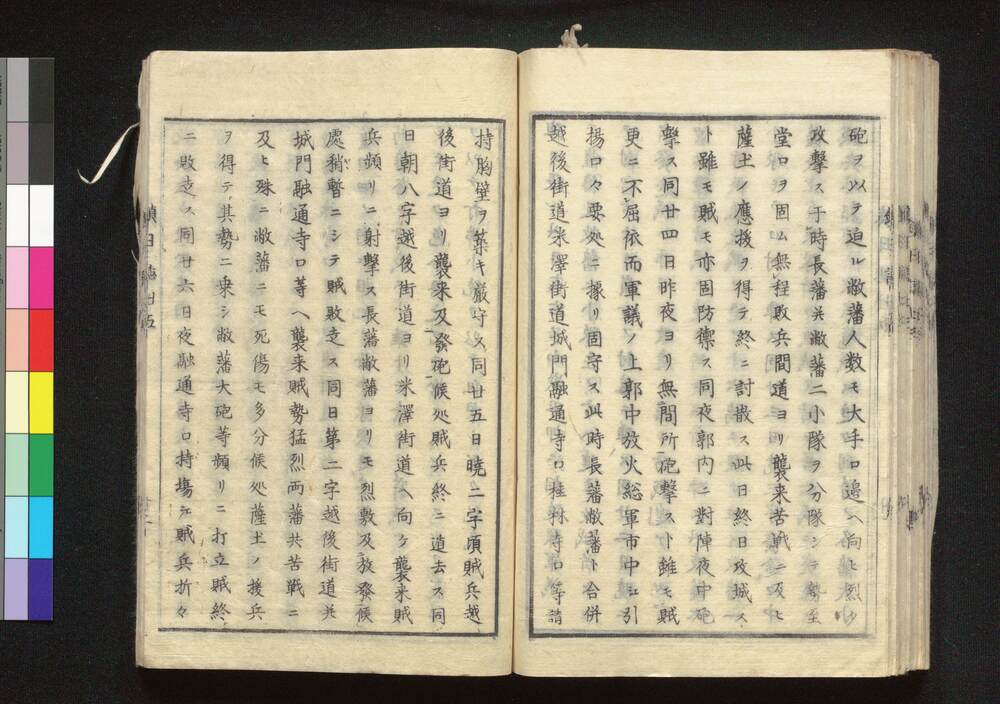 砲ヲ以テ迫ル敝藩人数モ大手口邊ヘ向ヒ烈シ
攻撃ス于時長藩并敝藩二小隊ヲ分隊シテ勢至
堂口ヲ固ム無程敗兵間道ヨリ襲来苦戦ニ及ヒ
薩土ノ應援ヲ得テ終ニ討散ス此日終日攻城ス
ト雖モ賊モ亦固防禦ス同夜郭内ニ對陣夜中砲
撃ス同廿四日昨夜ヨリ無間所砲撃スト雖モ賊
更ニ不屈依而軍議ノ上郭中放火総軍市中ヱ引
揚口々要処ニ據リ固守ス此時長藩敝藩ト合併
越後街道米澤街道城門融通寺口桂林寺口等請
持胸壁ヲ築キ厳守ス同廿五日曉二字頃賊兵越
後街道ヨリ襲来及發砲候処賊兵終ニ遁去ス同
日朝八字越後街道ヨリ米澤街道ヘ向ケ襲来賊
兵頻リニ射擊ス長藩敝藩ヨリモ烈敷及放發候
處稍暫ニシテ賊敗走ス同日第二字越後街道并
城門融通寺口等ヘ襲来賊勢猛烈両藩共苦戦ニ
及ヒ殊ニ敝藩ニモ死傷モ多分候処薩土ノ援兵
ヲ得テ其勢ニ乗シ敝藩大砲等頻リニ打立賊終
ニ敗走ス同廿六日夜融通寺口持場ヱ賊兵折々